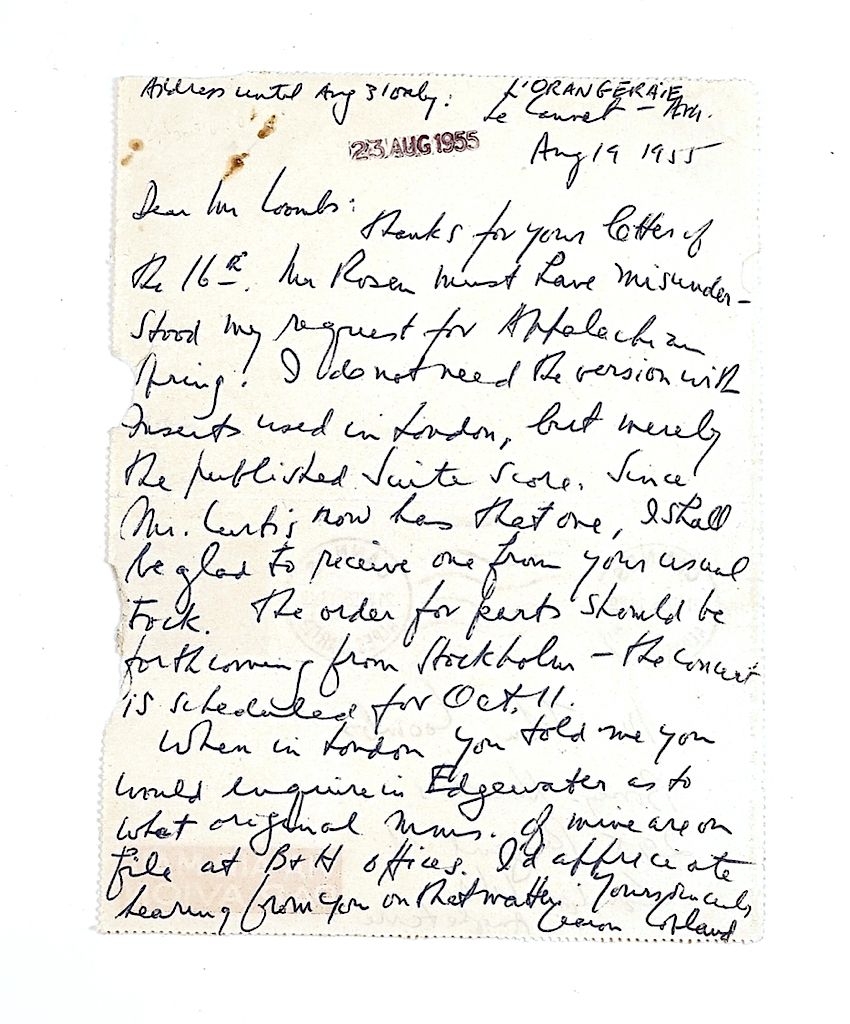 Address until Aug 31 only: L'ORANGERAIE
Le Cannet — AM.
23 AUG 1955
Aug 19 1955
Dear Mr Coombs:
Thanks for your letter of
the 16th. Mr Rosen must have misunder-
stood my request for Appalachian
Spring! I do not need the version with
inserts used in London, but merely
the published Suite Score. Since
Mr. Curtis now has that one, I shall
be glad to receive one from your usual
stock. The order for parts should be
forthcoming from Stockholm — the concert
is scheduled for Oct. 11.
When in London you told me you
would enquire in Edgewater as to
what original Mms. of mine are on
file at B+H offices. I'd appreciate
hearing from you on that matter. Yours sincerely
Aaron Copland